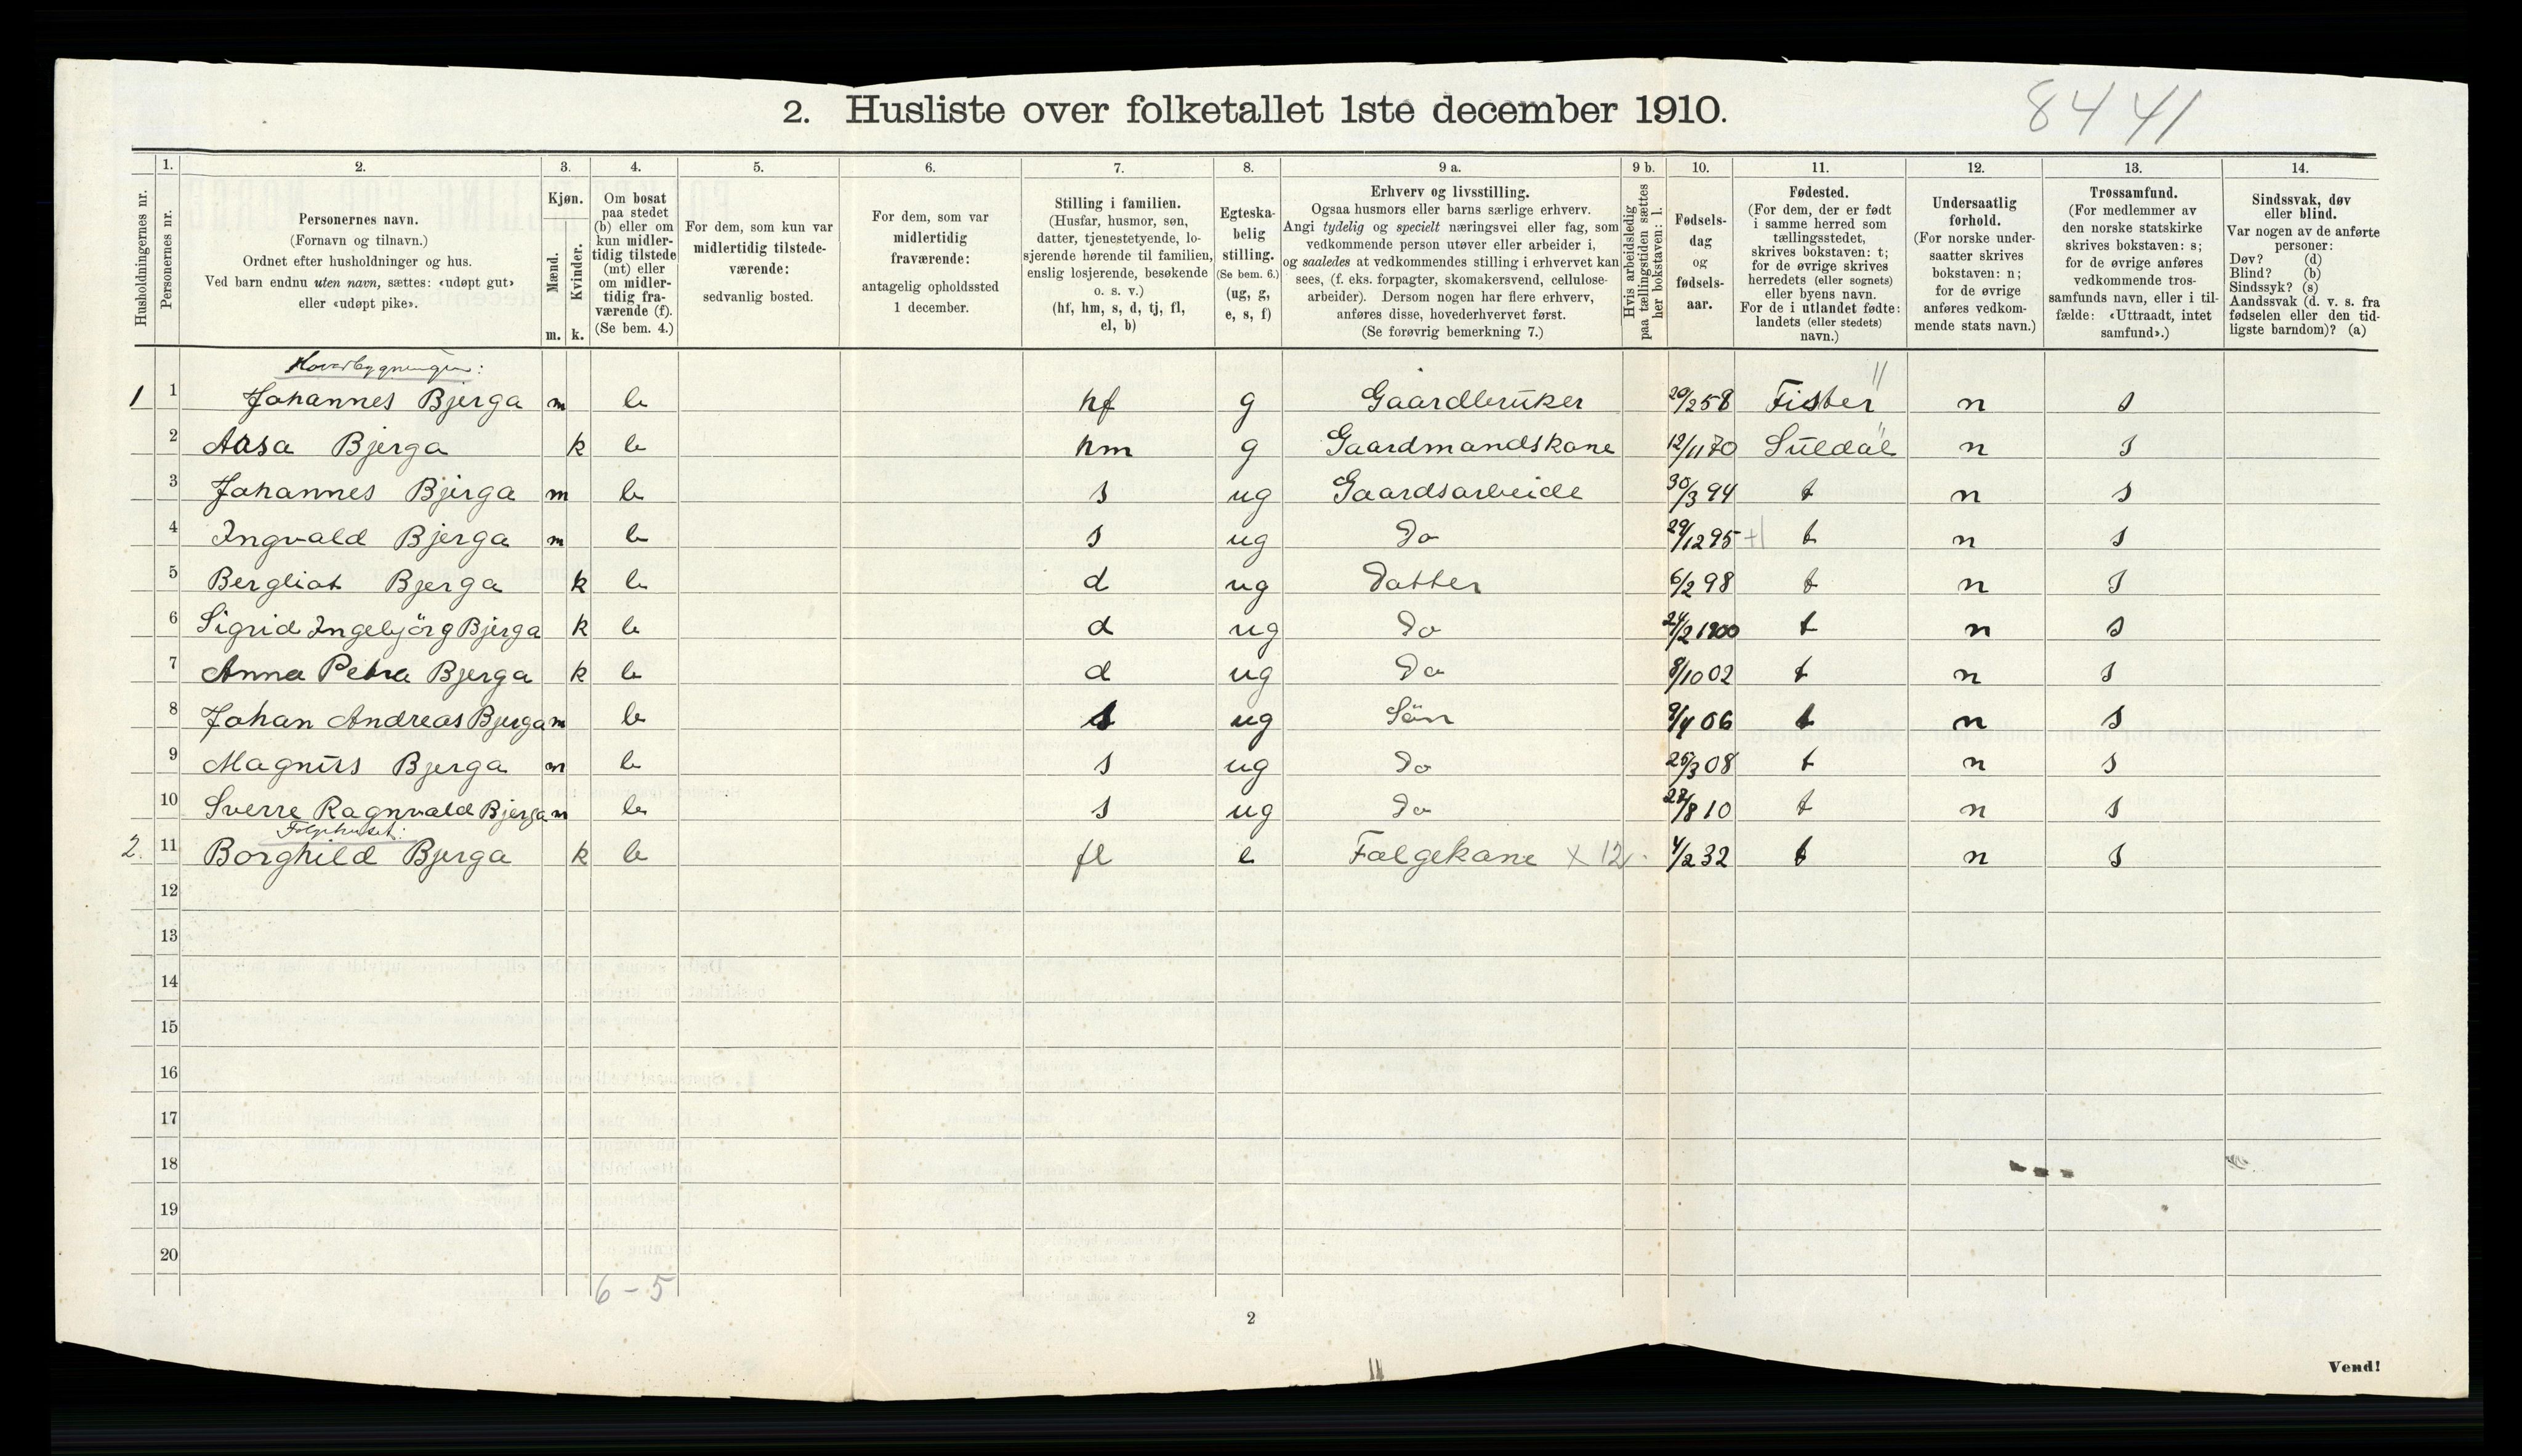 8441
2. Husliste over folketallet 1ste december 1910.
Husholdningernes nr.
1.
Personernes nr.
2.
Personernes navn.
(Fornavn og tilnavn.)
Ordnet efter husholdninger og hus.
Ved barn endnu uten navn, sættes: «udøpt gut»
eller «udøpt pike».
3.
Kjøn.
Mænd.
Kvinder.
m. k.
4.
Om bosat
paa stedet
(b) eller om
kun midler-
tidig tilstede
(mt) eller
om midler-
tidig fra-
værende (f).
(Se bem. 4.)
5.
For dem, som kun var
midlertidig tilstede-
værende:
sedvanlig bosted.
6.
For dem, som var
midlertidig
fraværende:
antagelig opholdssted
1 december.
7.
Stilling i familien.
(Husfar, husmor, søn,
datter, tjenestetyende, lo-
sjerende hørende til familien,
enslig losjerende, besøkende
o. s. v.)
(hf, hm, s, d, tj, fl,
el, b)
8.
Egteska-
belig
stilling.
(Se bem. 6.)
(ug, g,
e, s, f)
9 a.
Erhverv og livsstilling.
Ogsaa husmors eller barns særlige erhverv.
Angi tydelig og specielt næringsvei eller fag, som
vedkommende person utøver eller arbeider i,
og saaledes at vedkommendes stilling i erhvervet kan
sees, (f. eks. forpagter, skomakersvend, cellulose-
arbeider). Dersom nogen har flere erhverv,
anføres disse, hovederhvervet først.
(Se forøvrig bemerkning 7.)
9 b.
Hvis arbeidsledig
paa tællingstiden sættes
her bokstaven: l.
10.
Fødsels-
dag
og
fødsels-
aar.
11.
Fødested.
(For dem, der er født
i samme herred som
tællingsstedet,
skrives bokstaven: t;
for de øvrige skrives
herredets (eller sognets)
eller byens navn.
For de i utlandet fødte:
landets (eller stedets)
navn.)
12.
Undersaatlig
forhold.
(For norske under-
saatter skrives
bokstaven: n;
for de øvrige
anføres vedkom-
mende stats navn.)
13.
Trossamfund.
(For medlemmer av
den norske statskirke
skrives bokstaven: s;
for de øvrige anføres
vedkommende tros-
samfunds navn, eller i til-
fælde: «Uttraadt, intet
samfund».)
14.
Sindssvak, døv
eller blind.
Var nogen av de anførte
personer:
Døv? (d)
Blind? (b)
Sindssyk? (s)
Aandssvak (d. v. s. fra
fødselen eller den tid-
ligste barndom)? (a)
Hovedbygningen:
1 1 Johannes Bjerga m b hf g Gaardbruker 20/2 58 Fister n s
2 Aasa Bjerga k b hm g Gaardmandskone 12/11 70 Suldal n s
3 Johannes Bjerga m b s ug Gaardsarbeide 30/3 94 t n s
4 Ingvald Bjerga m b s ug Do 29/12 95 +1 t n s
5 Bergliot Bjerga k b d ug Datter 6/2 98 t n s
6 Sigrid Ingebjörg Bjerga k b d ug Do 24/2 1900 t n s
7 Anna Petra Bjerga k b d ug Do 8/10 02 t n s
8 Johan Andreas Bjerga m b s ug Sön 9/4 06 t n s
9 Magnus Bjerga m b s ug Do 25/3 08 t n s
10 Sverre Ragnvald Bjerga m b s ug Do 28/8 10 t n s
Folgehuset:
2. 11 Borghild Bjerga k b fl e Folgekone X 12 4/2 32 t n s
12
13
14
15
16
17
18
19
20
6 - 5
2
Vend!